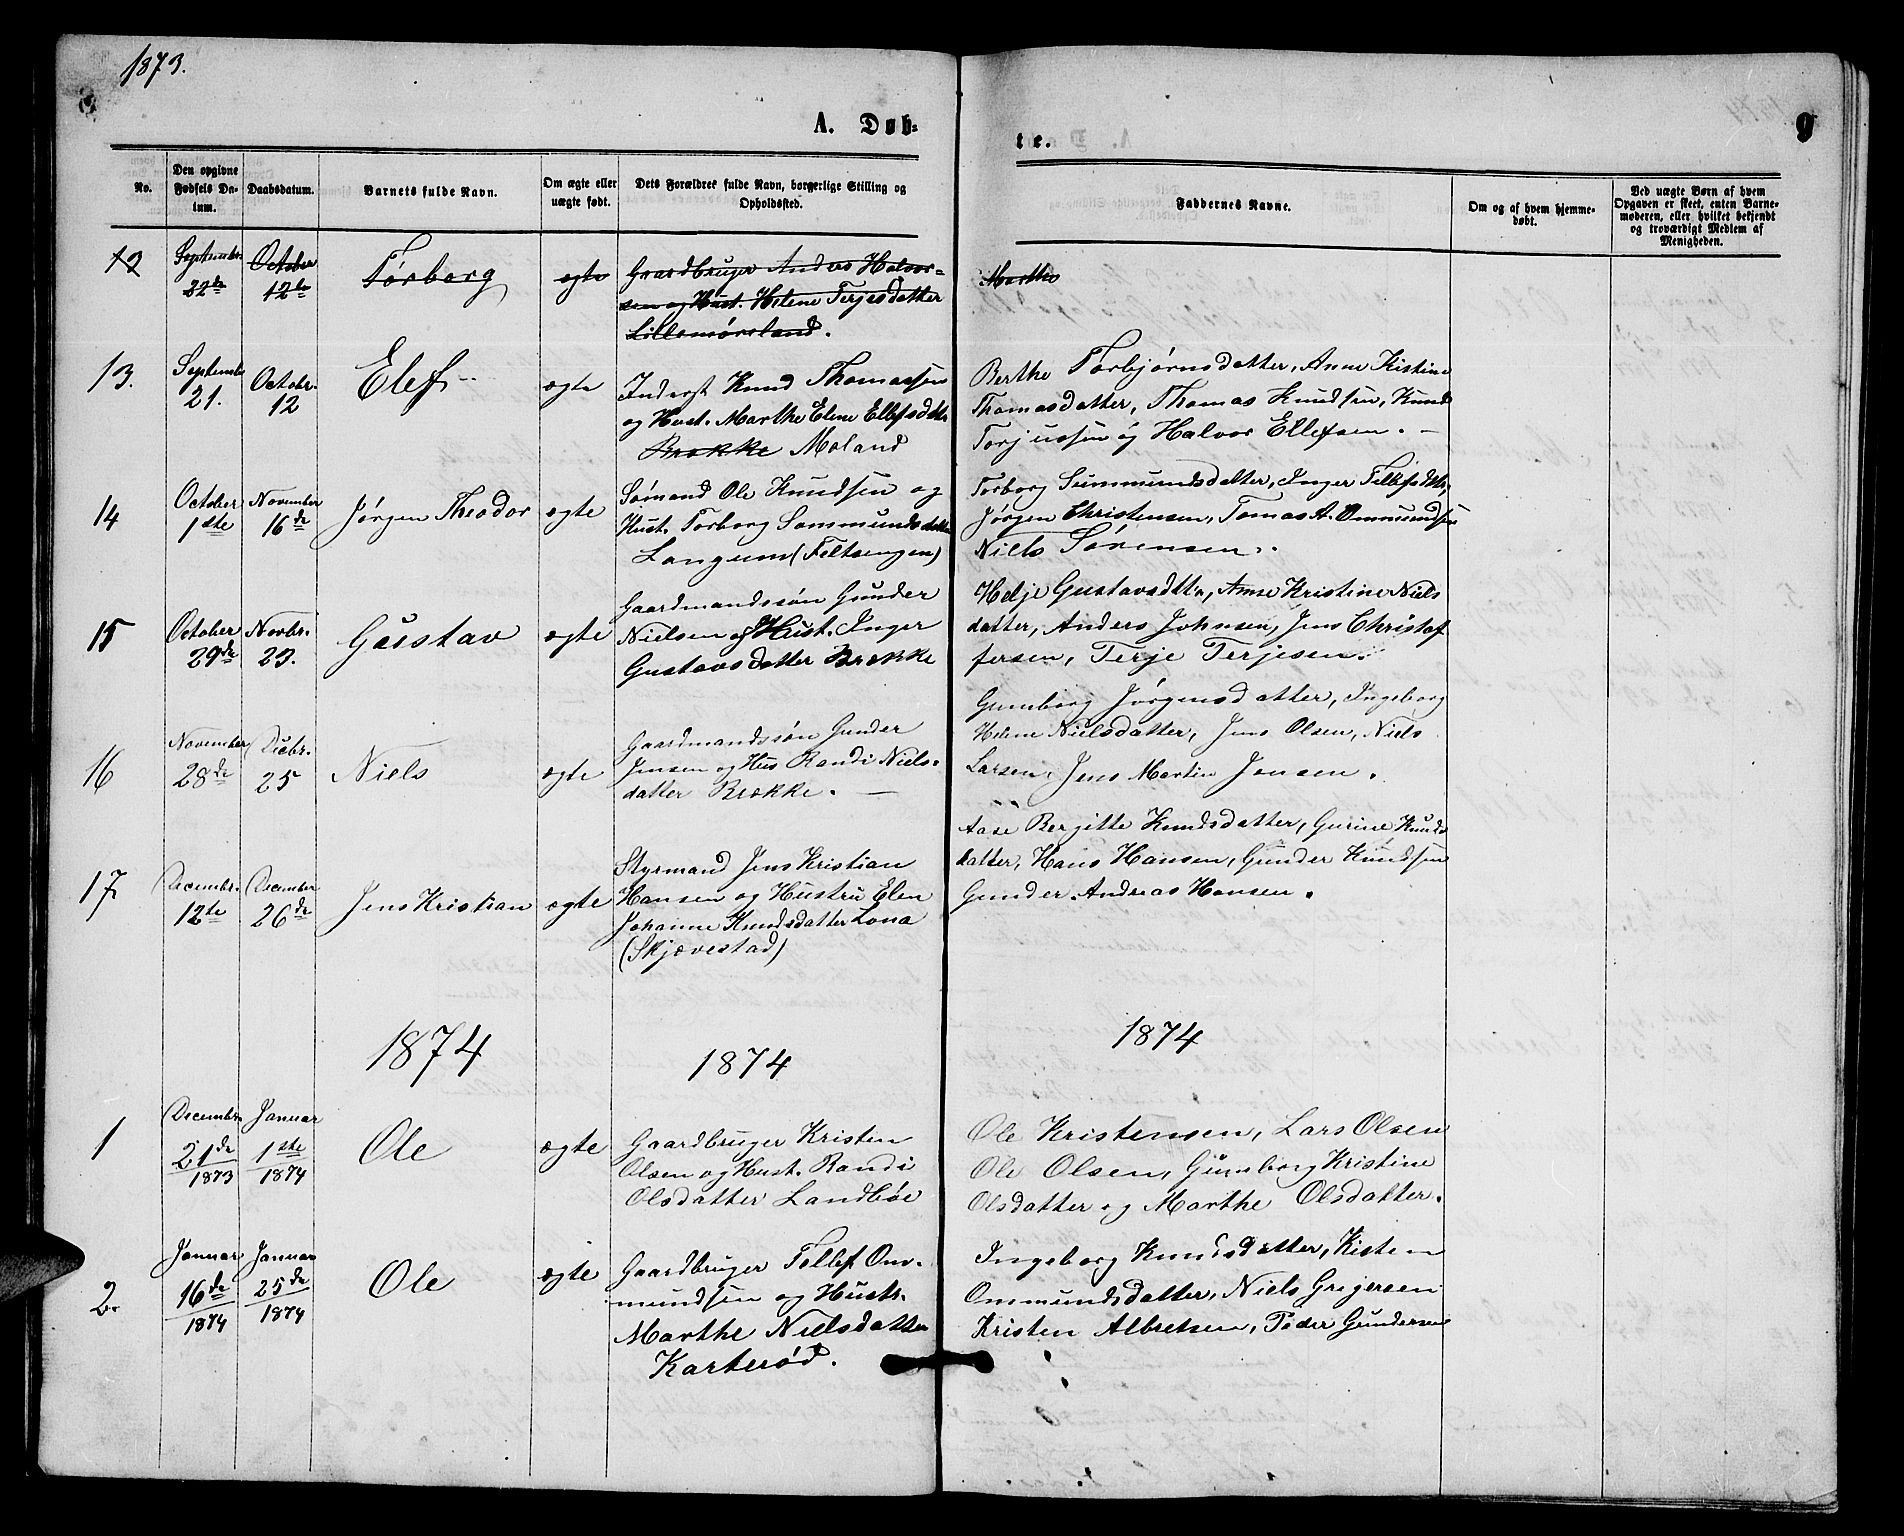 1873.
A. Døb-
te.
9
No.
Den opgivne Fødsels Da-tum.
Daabsdatum.
Barnets fulde Navn.
Om ægte eller uægte født.
Dets Forældres fulde Navn, borgerlige Stilling og Opholdssted.
Faddernes Navne.
Om og af hvem hjemme-døbt.
Ved uægte Børn af hvem Opgaven er skeet, enten Barne-moderen, eller hvilket bekjendt og troværdigt Medlem af Menigheden.
12
Septembr.
22de
October
12te
Torborg
ægte
Gaardbruger Anders Halvor-
sen og Hust. Helene Terjesdatter
Lillemørsland.
Marthe
13.
Septembr
21.
Octobr.
12
Elef
ægte
Inderst Knud Thomassen
og Hust. Marthe Elene Ellefsdttr.
Brække Moland
Berthe Torbjørnsdatter, Anne Kistine
Thomasdatter, Thomas Knudsen, Knud
Torjussen og Halvor Ellefsen. –
14
October
1ste
November
16de
Jørgen Theodor
ægte
Sømand Ole Knudsen og
Hust. Torborg Sommundsdatter
Langum (Feltsengen)
Torborg Summundsdatter, Inger Tellefsdttr,
Jørgen Christensen, Tomas A. Ommundsen
Niels Sørensen.
15
October
29de
Novbr.
23.
Gustav
ægte
Gaardmandssøn Gunder
Nielsen og Hust. Inger
Gustavsdatter Brække
Helje Gustavsdttr, Anne Kristine Niels
datter, Anders Johnsen, Jens Christof
fersen, Terje Terjesen.
16
November
28de
Decbr.
25
Niels
ægte
Gaardmandssøn Gunder
Jensen og Hus Randi Niels-
datter Brække. –
Gunborg Jørgensdatter, Ingeborg
Helene Nielsdatter, Jens Olsen, Niels
Larsen, Jens Martin Jensen.
17
Decembr.
12te
December
26de
Jens Kristian
ægte
Styrmand Jens Kristian
Hansen og Hustru Elen
Johanne Knudsdatter Lona
(Skjævestad)
Aase Bergitte Knudsdatter, Gurine Knuds
datter, Hans Hansen, Gunder Knudsen
Gunder Andreas Hansen.
1874
1874
1874
1
Decembr.
21de
1873
Januar
1ste
1874
Ole
ægte
Gaardbruger Kristen
Olsen og Hust. Randi
Olsdatter Landbøe
Ole Kristensen, Lars Olsen
Ole Olsen, Gunborg Kristine
Olsdatter og Marthe Olsdatter.
2.
Januar
16de
1874
Januar
25de
1874
Ole
ægte
Gaardbruger Tellef Om-
mundsen og Hustr.
Marthe Nielsdatter
Karterød.
Ingeborg Knudsdatter, Kisten
Ommundsdatter, Niels Gregersen
Kristen Albretsen, Peder Gundersen